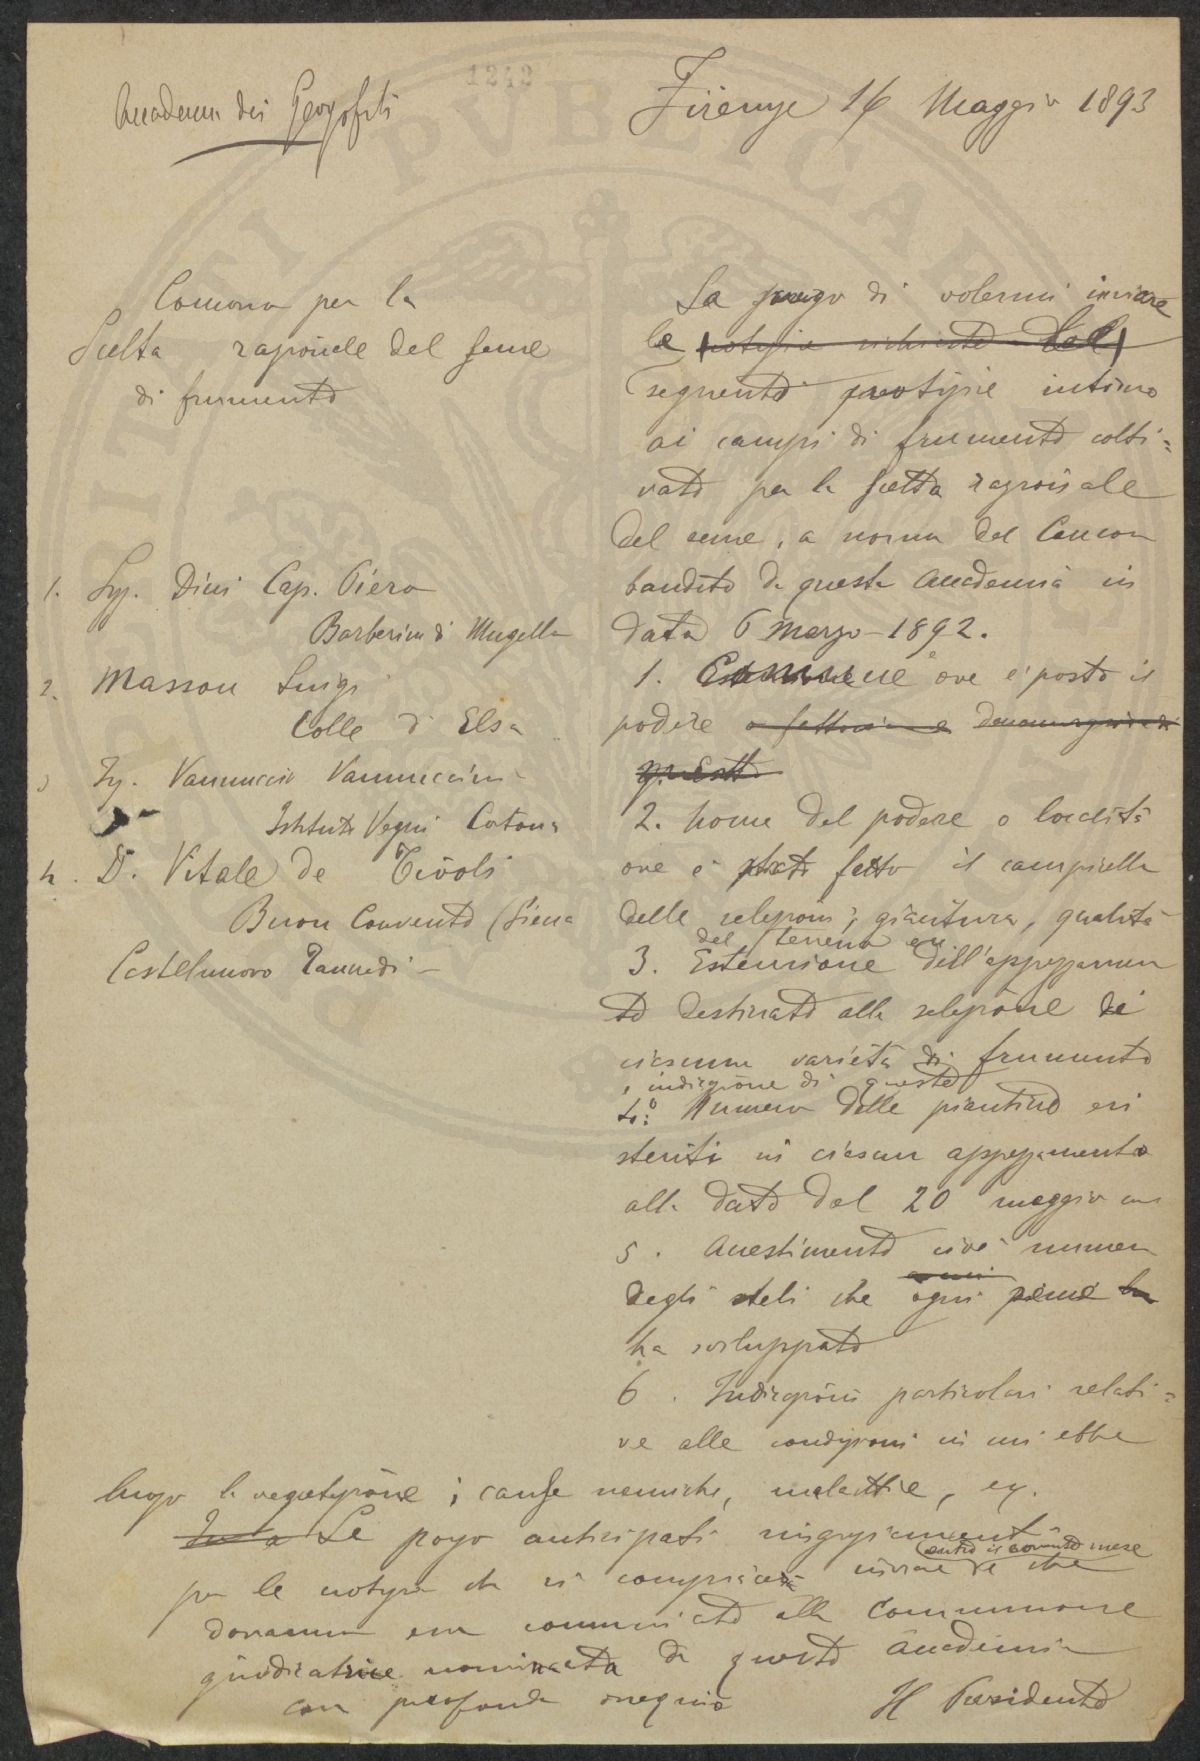 1242
Accademia dei Georgofili
Firenze 16 Maggio 1893
Concorso per la
Scelta razionale del seme
di frumento
1. Sig. Dini Cap. Piero
Barberino di Mugello
2. Masson Luigi
Colle d'Elsa
3 Sig. Vannuccio Vannuccini
Istituto Vegni Cortona
4. D. Vitale de Tivoli
Buon Convento (Siena
Castelnuovo Tancredi
La prego di volermi inviare
le notizie richieste dal
seguenti notizie intorno
ai campi di frumento colti=
vato per la scelta razionale
del seme, a norma del Concorso
bandito da questa Accademia in
data 6 Marzo 1892.
1. Comune ove è posto il
podere o fattoria e denominazione di
questo
2. Nome del podere o località
ove è stato fatto il campicello
delle selezioni; giacitura, qualità
del terreno
3. Estensione dell'appezzamen
to destinato alla selezione di
ciascuna varietà di frumento
, indicazione di queste
4.° Numero delle piantine esi
stenti in ciascun appezzamento
alla data del 20 maggio
5. Accestimento cioè numero
degli steli che ogni seme
ha sviluppato
6. Indicazioni particolari relati=
ve alle condizioni in cui ebbe
luogo la vegetazione; cause nemiche, malattie, ec.
Le porgo anticipati ringraziamenti
entro il corrente mese
per le notizie che si compiacerà inviare e che
dovranno esser comunicate alla Commissione
giudicatrice nominata da questa Accademia
con profondo ossequio
Il Presidente